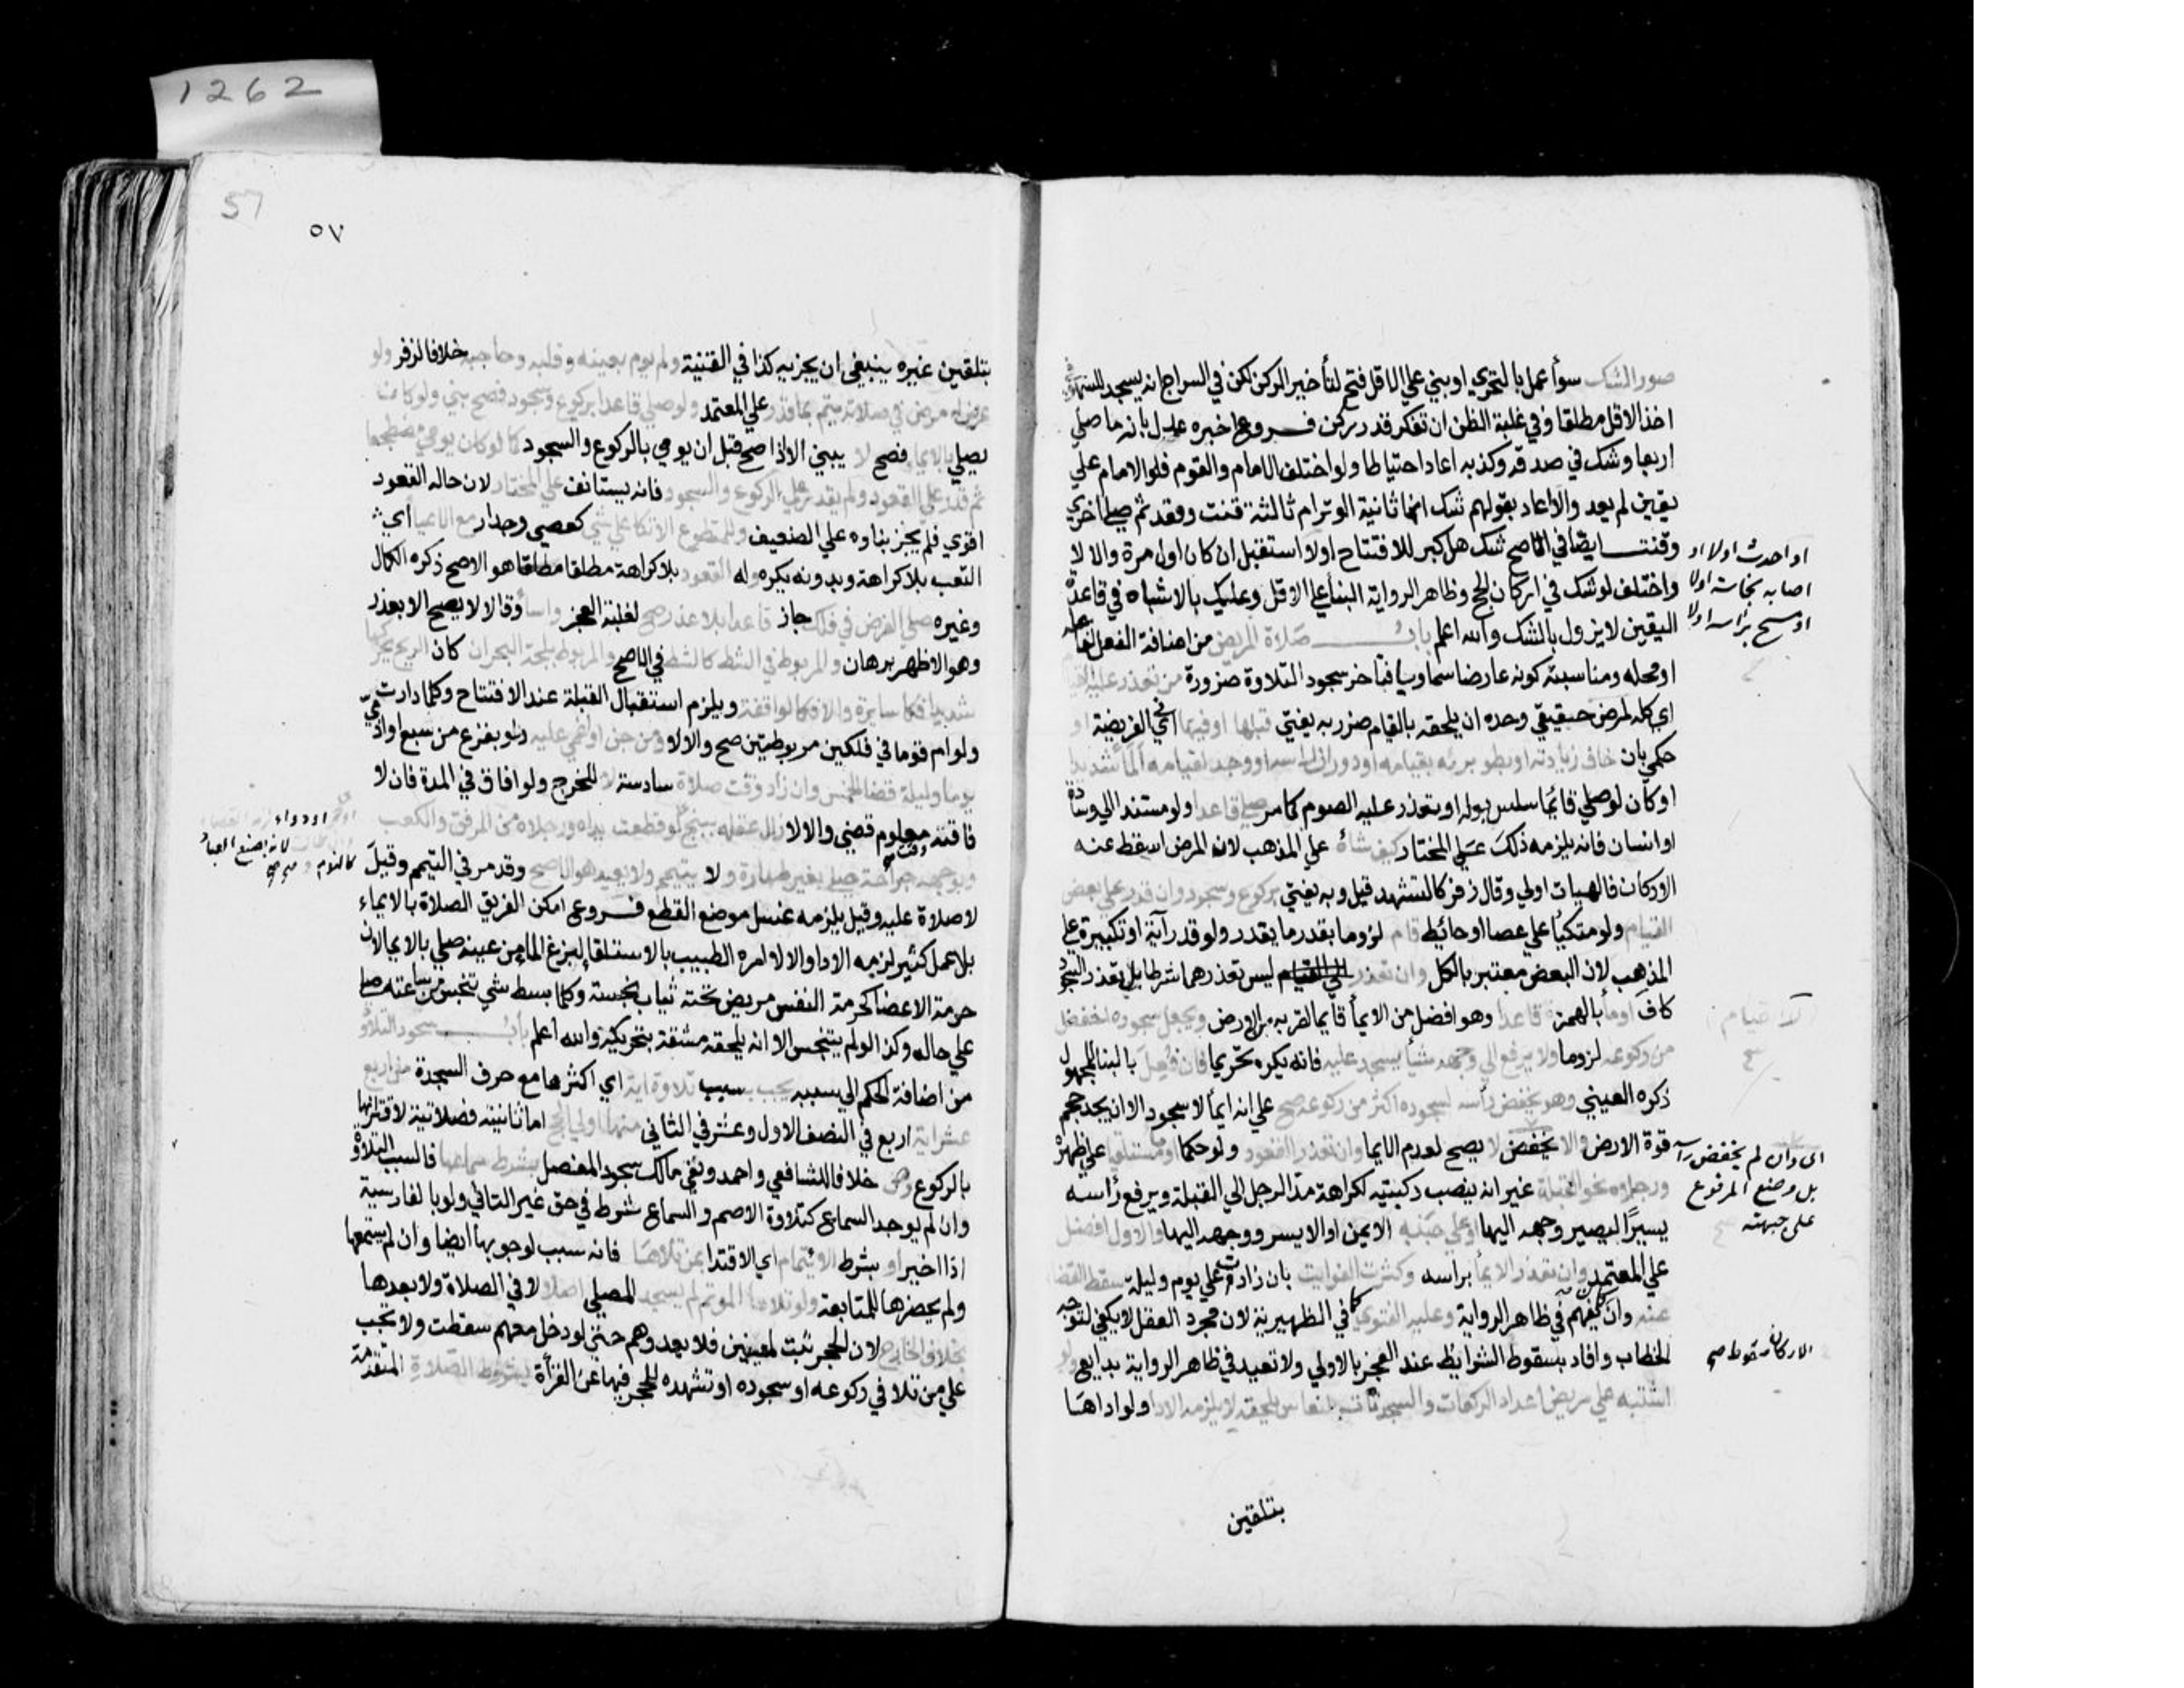 1262
صور الشك سوأ عمل بالتحري او بني علي الاقل فتح لتأخير الركن لكن في السراج انه يسجد للسهو في
اخذ الاقل مطلقا وفي غلبة الظن ان تفكر قدر ركن فروع اخبره عدل بانه ما صلي
اربعا وشك في صدقه وكذبه اعاد احتياطا ولو اختلف الامام والقوم فلو الامام علي
يقين لم يعد والا اعاد بقولهم شك انها ثانية الوتر ام ثالثة قنت وقعد ثم صلي اخري
وقنت ايضا في الاصح شك هل كبر للافتتاح اولا استقبل ان كان اول مرة والا لا
او احدث اولا او
اصابه نجاسة اولا
او مسح براسه اولا
واختلف لو شك في اركان الحج وظاهر الرواية البنأ علي الاقل وعليك بالاشباه في قاعدة
اليقين لا يزول بالشك والله اعلم باب صلاة المريض من اضافة الفعل لفاعله
او محله ومناسبته كونه عارضا سماويا فتأخر سجود التلاوة ضرورة من تعذر عليه القيام
اي كله لمرض حقيقي وحده ان يلحقه بالقيام ضرر به يفتي قبلها او فيها اي الفريضة او
حكمي بان خاف زيادته او بطو برئه بقيامه او دوران راسه او وجد لقيامه ألما شديدا
او كان لو صلي قائما سلس بوله او تعذر عليه الصوم كما مر صلي قاعدا ولو مستندا الي وسادة
او انسان فانه يلزمه ذلك علي المختار كيف شأ علي المذهب لان المرض اسقط عنه
الاركان فالهيات اولي وقال زفر كالتشهد قيل وبه يفتي بركوع وسجود وان قدر علي بعض
القيام ولو متكيا علي عصا او حائط قام لزوما بقدر ما يقدر ولو قدر آية او تكبيرة علي
المذهب لان البعض معتبر بالكل وان تعذر ليس تعذرهما شرطا بل تعذر السجود
كاف اومأ بالهمزة قاعدا وهو افضل من الايمأ قايما لقربه من الارض ويجعل سجوده اخفض
لا القيام
من ركوعه لزوما ولا يرفع الي وجهه شيأ يسجد عليه فانه يكره تحريما فان فعل بالبنا للمجهول
ذكره العيني وهو يخفض رأسه لسجوده اكثر من ركوعه صح علي انه ايمأ لا سجود الا ان يجد حجم
قوة الارض والا يخفض لا يصح لعدم الايما وان تعذر القعود ولو حكما اومأ مستلقيا علي ظهره
اي وان لم يخفض رأسه
بل وضع المرفوع
علي جبهته صح
ورجلاه نحو القبلة غير انه ينصب ركبتيه لكراهة مد الرجل الي القبلة ويرفع رأسه
يسيرا ليصير وجهه اليها او علي جنبه الايمن او الايسر ووجهه اليها والاول افضل
علي المعتمد وان تعذر الايمأ براسه وكثرت الفوايت بان زادت علي يوم وليلة سقط القضا
عنه وان كان يفهم في ظاهر الرواية وعليه الفتوي كما في الظهيرية لان مجرد العقل لا يكفي لتوجه
الخطاب وافاد بسقوط الشرايط عند العجز بالاولي ولا تعيد في ظاهر الرواية بدايع ولو
الاركان سقوط صح
اشتبه علي مريض اعداد الركعات والسجدات لنعاس يلحقه لا يلزمه الادا ولو اداها
بتلقين
57
٥٧
بتلقين غيره ينبغي ان يجزيه كذا في القنية ولم يوم بعينه وقلبه وحاجبه خلافا لزفر ولو
عرض له مرض في صلاته يتم بما قدر علي المعتمد ولو صلي قاعدا بركوع وسجود فصح بني ولو كان
يصلي بالايما فصح لا يبني الا اذا صح قبل ان يومي بالركوع والسجود كما لو كان يومي مضطجعا
ثم قدر علي القعود ولم يقدر علي الركوع والسجود فانه يستانف علي المختار لان حالة القعود
اقوي فلم يجز بناوه علي الضعيف وللمتطوع الاتكا علي شي كعصي وجدار مع الاعيا أي
التعب بلا كراهة وبدونه يكره وله القعود بلا كراهة مطلقا هو الاصح ذكره الكمال
وغيره صلي الفرض في فلك جار قاعدا بلا عذر صح لغلبة العجز واسأ وقالا لا يصح الا بعذر
وهو الاظهر برهان والمربوط في الشط كالشط في الاصح والمربوط بلجة البحر ان كان الريح يحركها
شديدا فكالسايرة والا فكالواقفة ويلزم استقبال القبلة عند الافتتاح وكلما دارت
ولو ام قوما في فلكين مربوطتين صح والا لا ومن جن او اغمي عليه ولو بفزع من سبع او ادمي
يوما وليلة قضا الخمس وان زاد وقت صلاة سادسة لا للحرج ولو افاق في المدة فان لا
فاقته وقت معلوم قضي والا لا زال عقله ببنج او خمر او دواء لزمه القضاء
لانه بصنع العباد
كالنوم صح
لو قطعت يداه ورجلاه من المرفق والكعب
وبوجهه جراحة صلي بغير طهارة ولا يتيمم ولا يعيد هو الاصح وقد مر في التيمم وقيل
لا صلاة عليه وقيل يلزمه غسل موضع القطع فروع امكن الغريق الصلاة بالايماء
بلا عمل كثير لزمه الادا والا لا امره الطبيب بالاستلقا لبزغ الماء من عينه صلي بالايما لان
حرمة الاعضا كحرمة النفس مريض تحته ثياب نجسة وكلما بسط شي تنجس من ساعته صلي
علي حاله وكذا لو لم يتنجس الا انه يلحقه مشقة بتحريكه والله اعلم باب سجود التلاوة
من اضافة الحكم الي سببه يجب بسبب تلاوة اية اي اكثرها مع حرف السجدة من اربع
عشر اية اربع في النصف الاول وعشر في الثاني منها اولي الحج اما ثانيته فصلاتية لاقترانها
بالركوع وص خلافا للشافعي واحمد ونفي مالك سجود المفصل بشرط سماعها فالسبب التلاوة
وان لم يوجد السماع كتلاوة الاصم والسماع شرط في حق غير التالي ولو بالفارسية
اذا اخبر او بشرط الائتمام اي الاقتدا بمن تلاها فانه سبب لوجوبها ايضا وان لم يسمعها
ولم يحضرها للمتابعة ولو تلاها الموتم لم يسجد المصلي اصلا لا في الصلاة ولا بعدها
بخلاف الخارج لان الحجر ثبت لمعينين فلا يعدوهم حتي لو دخل معهم سقطت ولا تجب
علي من تلا في ركوعه او سجوده او تشهده للحجر فيها عن القرأة بشروط الصلاة المتقدمة